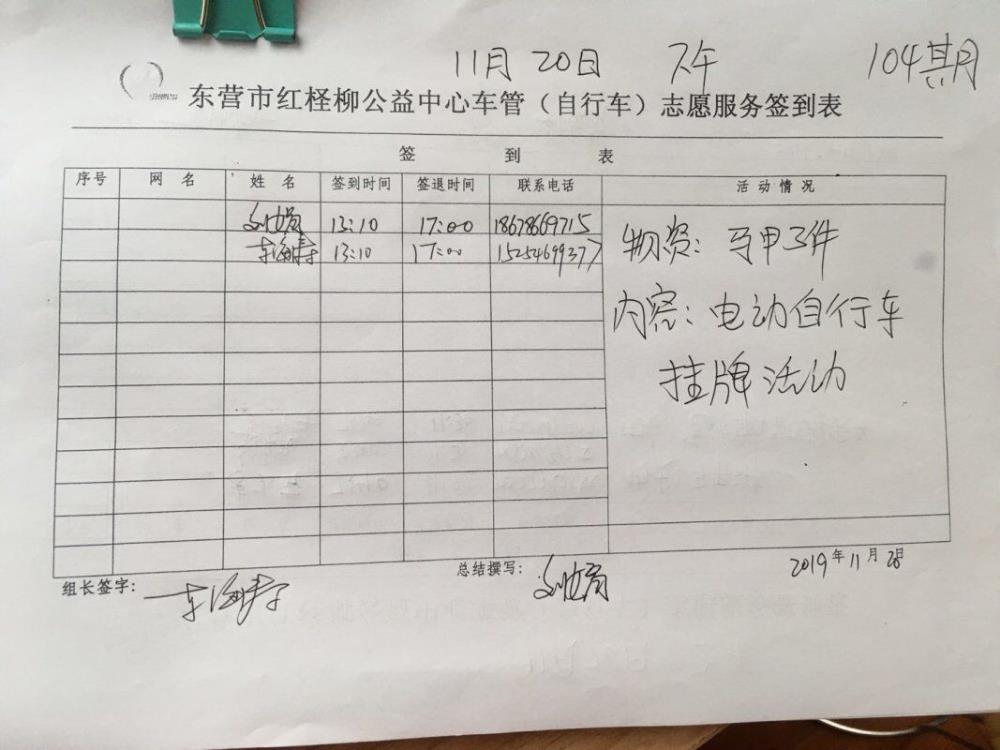 11月20日 下午 104期
东营市红柽柳公益中心车管（自行车）志愿服务签到表
签 到 表
序号 网 名 姓 名 签到时间 签退时间 联系电话 活 动 情 况
13:10 17:00 18678669715
13:10 17:00 15254699377
物资：马甲2件
内容：电动自行车
挂牌活动
组长签字：
总结撰写：
2019年11月20日